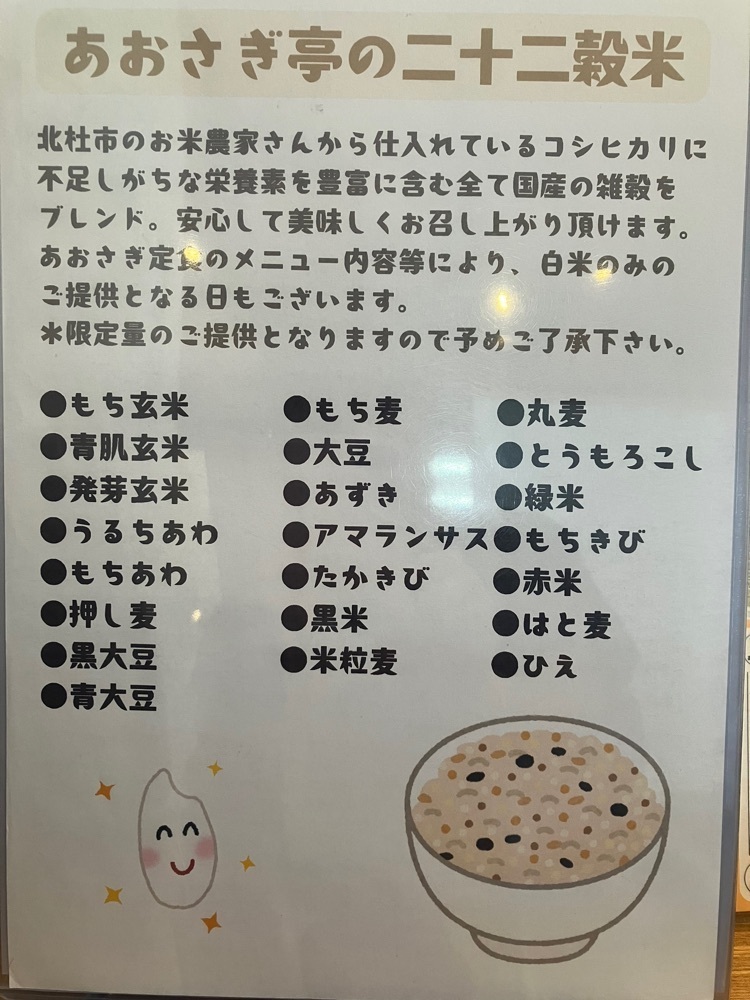 あおさぎ亭の二十二穀米
北杜市のお米農家さんから仕入れているコシヒカリに
不足しがちな栄養素を豊富に含む全て国産の雑穀を
ブレンド。安心して美味しくお召し上がり頂けます。
あおさぎ定食のメニュー内容等により、白米のみの
ご提供となる日もございます。
*限定量のご提供となりますので予めご了承下さい。
●もち玄米
●青肌玄米
●発芽玄米
●うるちあわ
●もちあわ
●押し麦
●黒大豆
●青大豆
●もち麦
●大豆
●あずき
●アマランサス
●たかきび
●黒米
●米粒麦
●丸麦
●とうもろこし
●緑米
●もちきび
●赤米
●はと麦
●ひえ